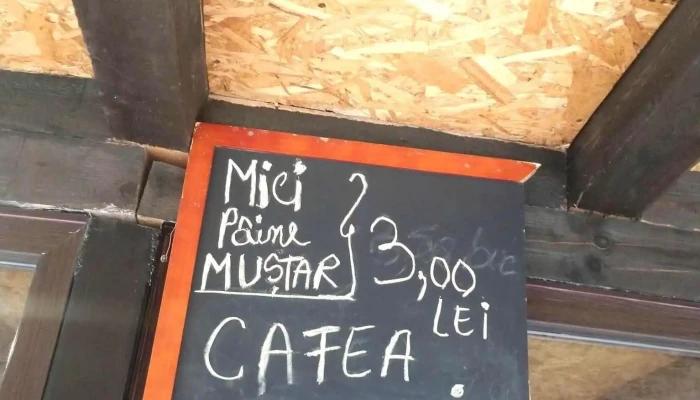 Mici
Pâine
MUȘTAR
3,00
LEi
CAFEA